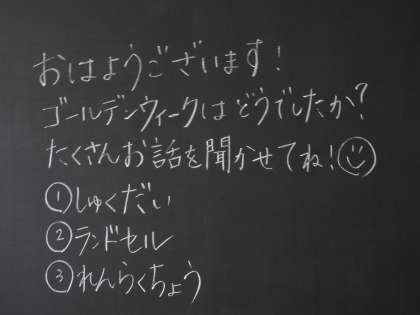 おはようございます!
ゴールデンウィークはどうでしたか?
たくさんお話を聞かせてね!
①しゅくだい
②ランドセル
③れんらくちょう